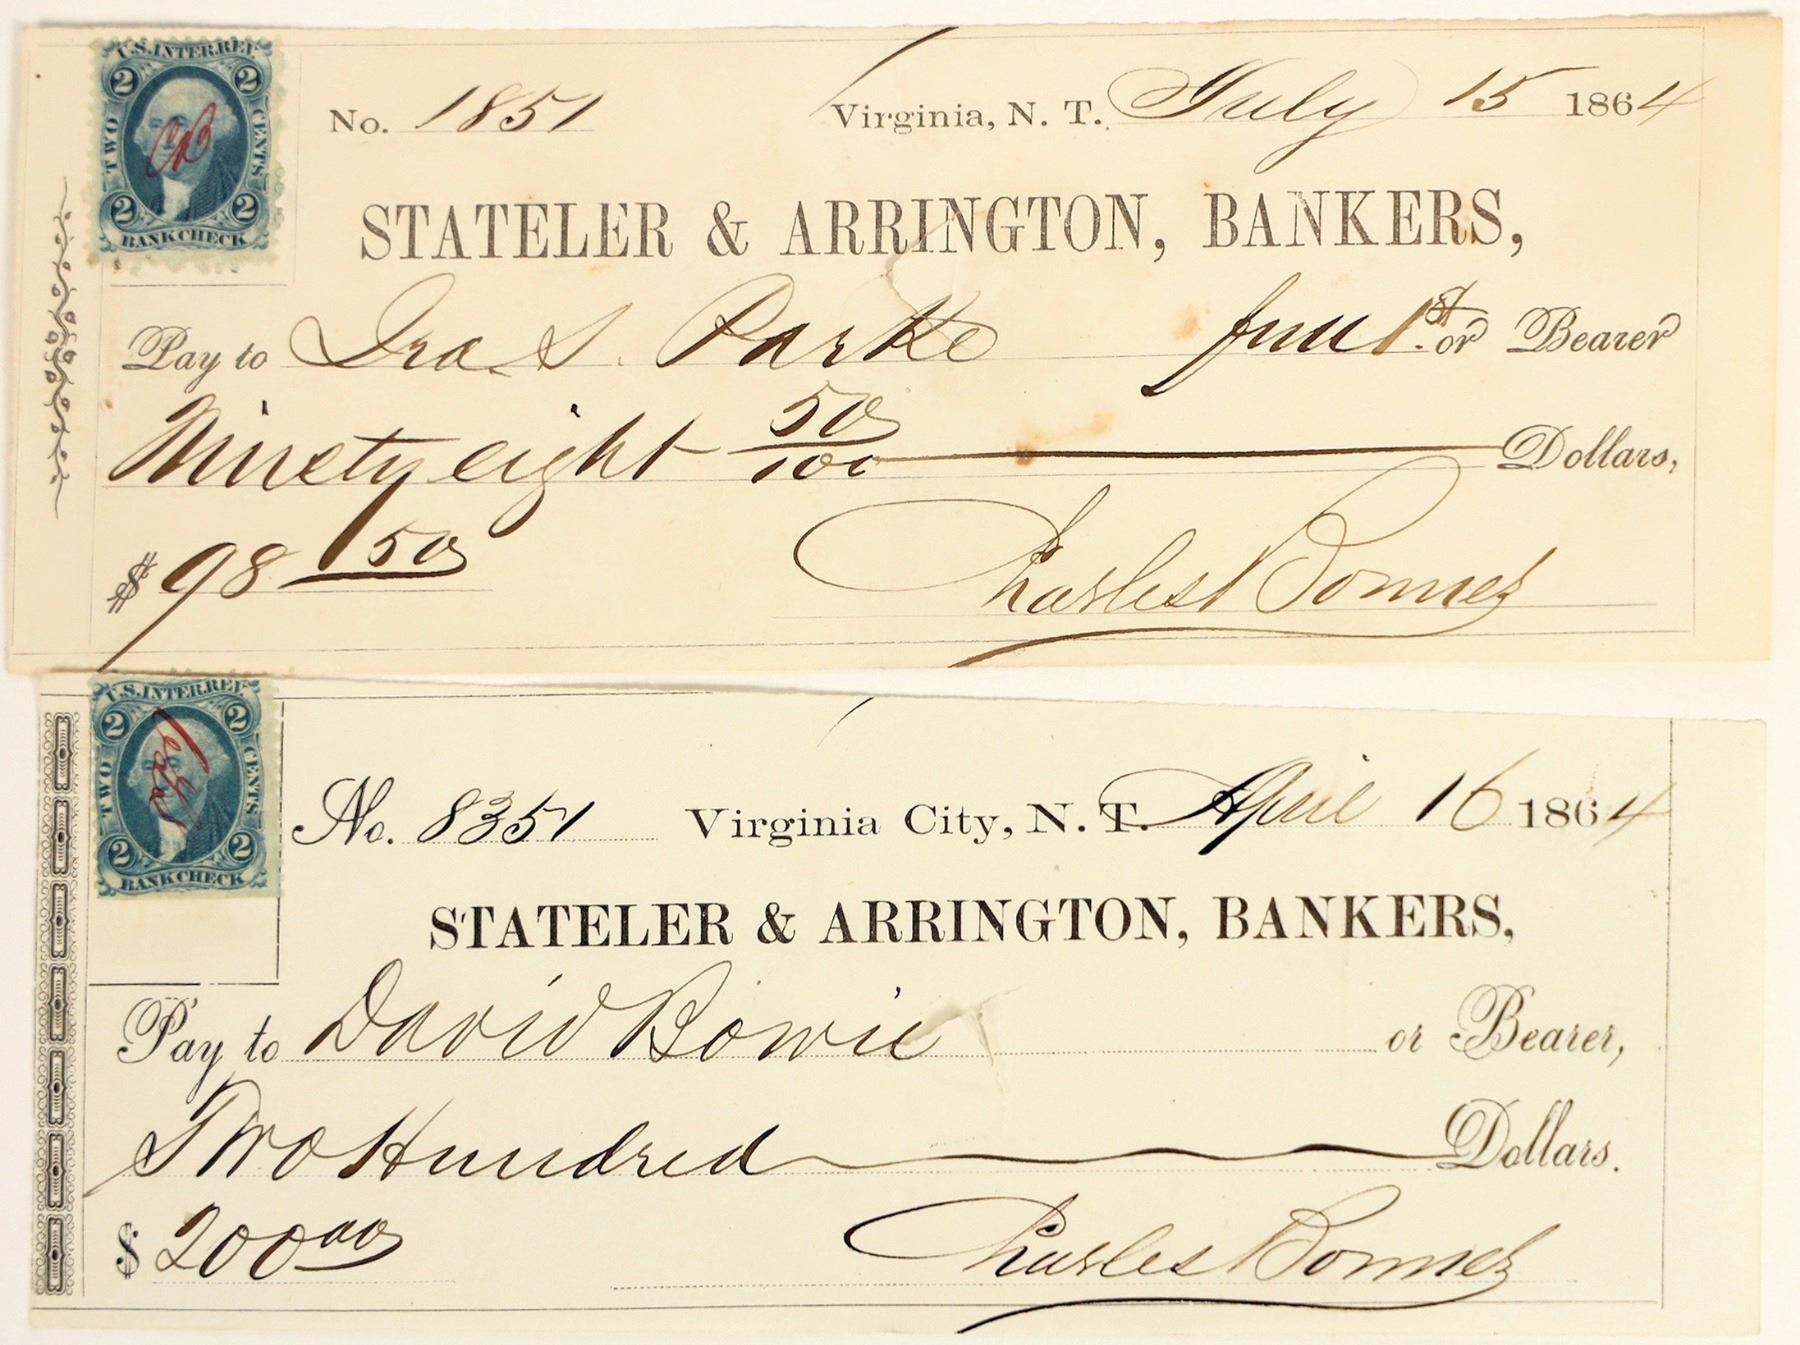 U.S. INTER. REV.
2 2
TWO CENTS
CB
2 2
BANK CHECK
No. 1851 Virginia, N. T. July 15 1864
STATELER & ARRINGTON, BANKERS,
Pay to Ira S. Parke or Bearer
Ninety eight 50/100 Dollars,
$ 98 50
Charles Bonner
U.S. INTER. REV.
2 2
TWO CENTS
2 2
BANK CHECK
No. 8351 Virginia City, N. T. April 16 1864
STATELER & ARRINGTON, BANKERS,
Pay to David Bowie or Bearer,
Two Hundred Dollars.
$ 200 00
Charles Bonner